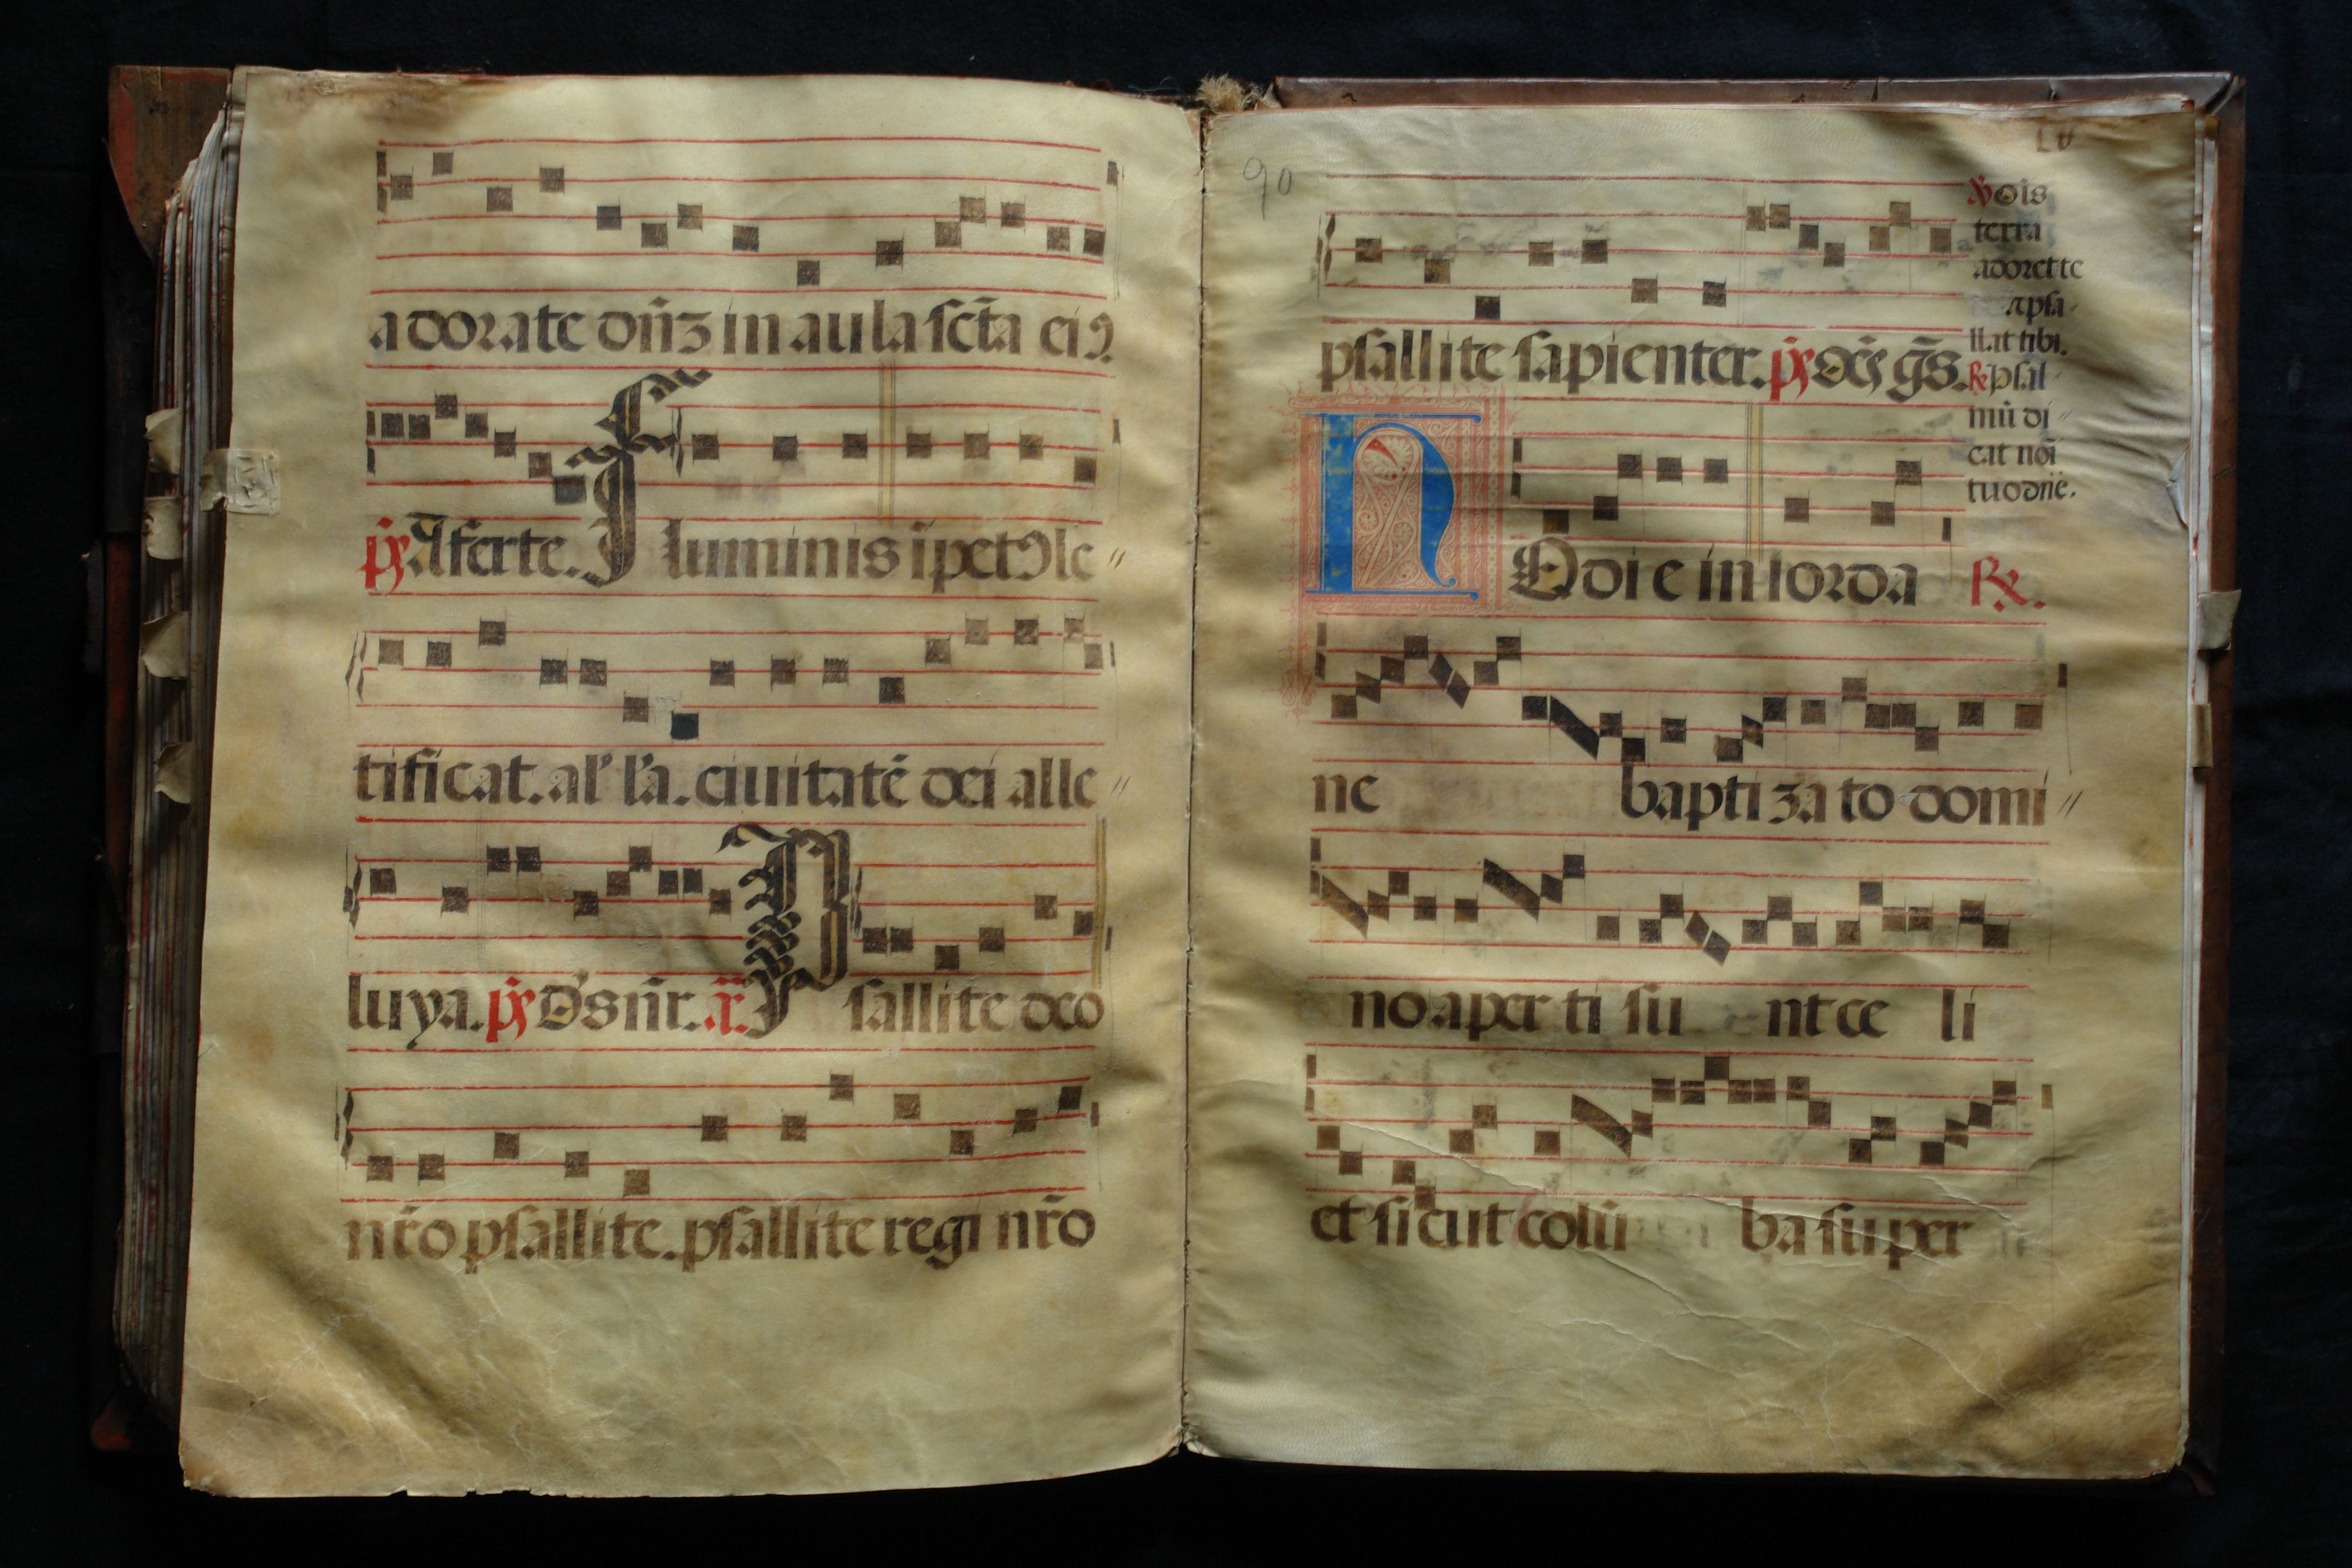 adorate dn̄ʒ in aula sc̄ta eiꝰ
p̄s Afferte. Fluminis īpetꝰ le〃
tificat. al'l'a. ciuitatē dei alle〃
luya. p̄s d's nr̄. ā. Psallite deo
nr̄o psallite. psallite regi nr̄o
90
LV
psallite sapienter. p̄s Oēs gēs.
HOdie in iorda R⁊.
ne baptizato domi〃
no aperti sunt celi
et sicut colūba super
℣ Oīs
terra
adoret te
⁊ psa-
llat tibi.
R⁊ psal-
mū di〃
cat noī
tuo dn̄e.